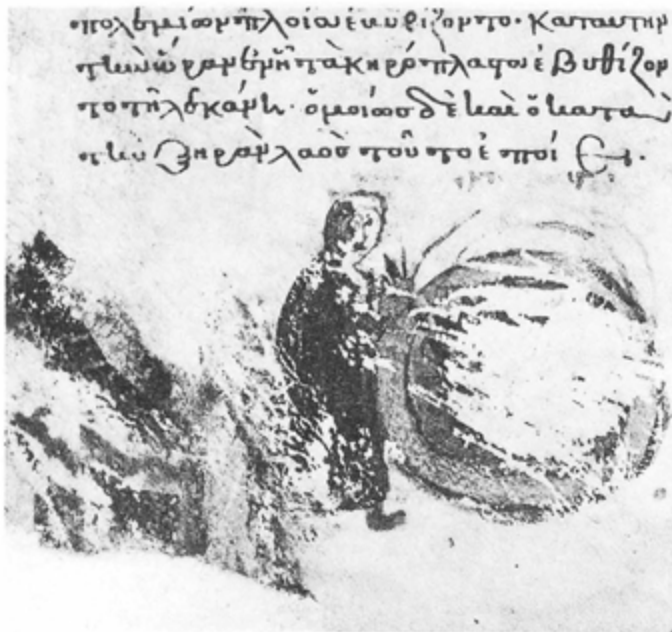 πολεμίων πλοῖα ἐκυρίζοντο· Κατ αυτην
την ὥραν ἐν ἧ τὰ κηρόπλαστα ἐβυθίζον
το τῆ λεκάνη· ὁμοίωσ δὲ καὶ ὁ κατὰ
την ξηρὰν λαὸσ τοῦτο ἐποίει·